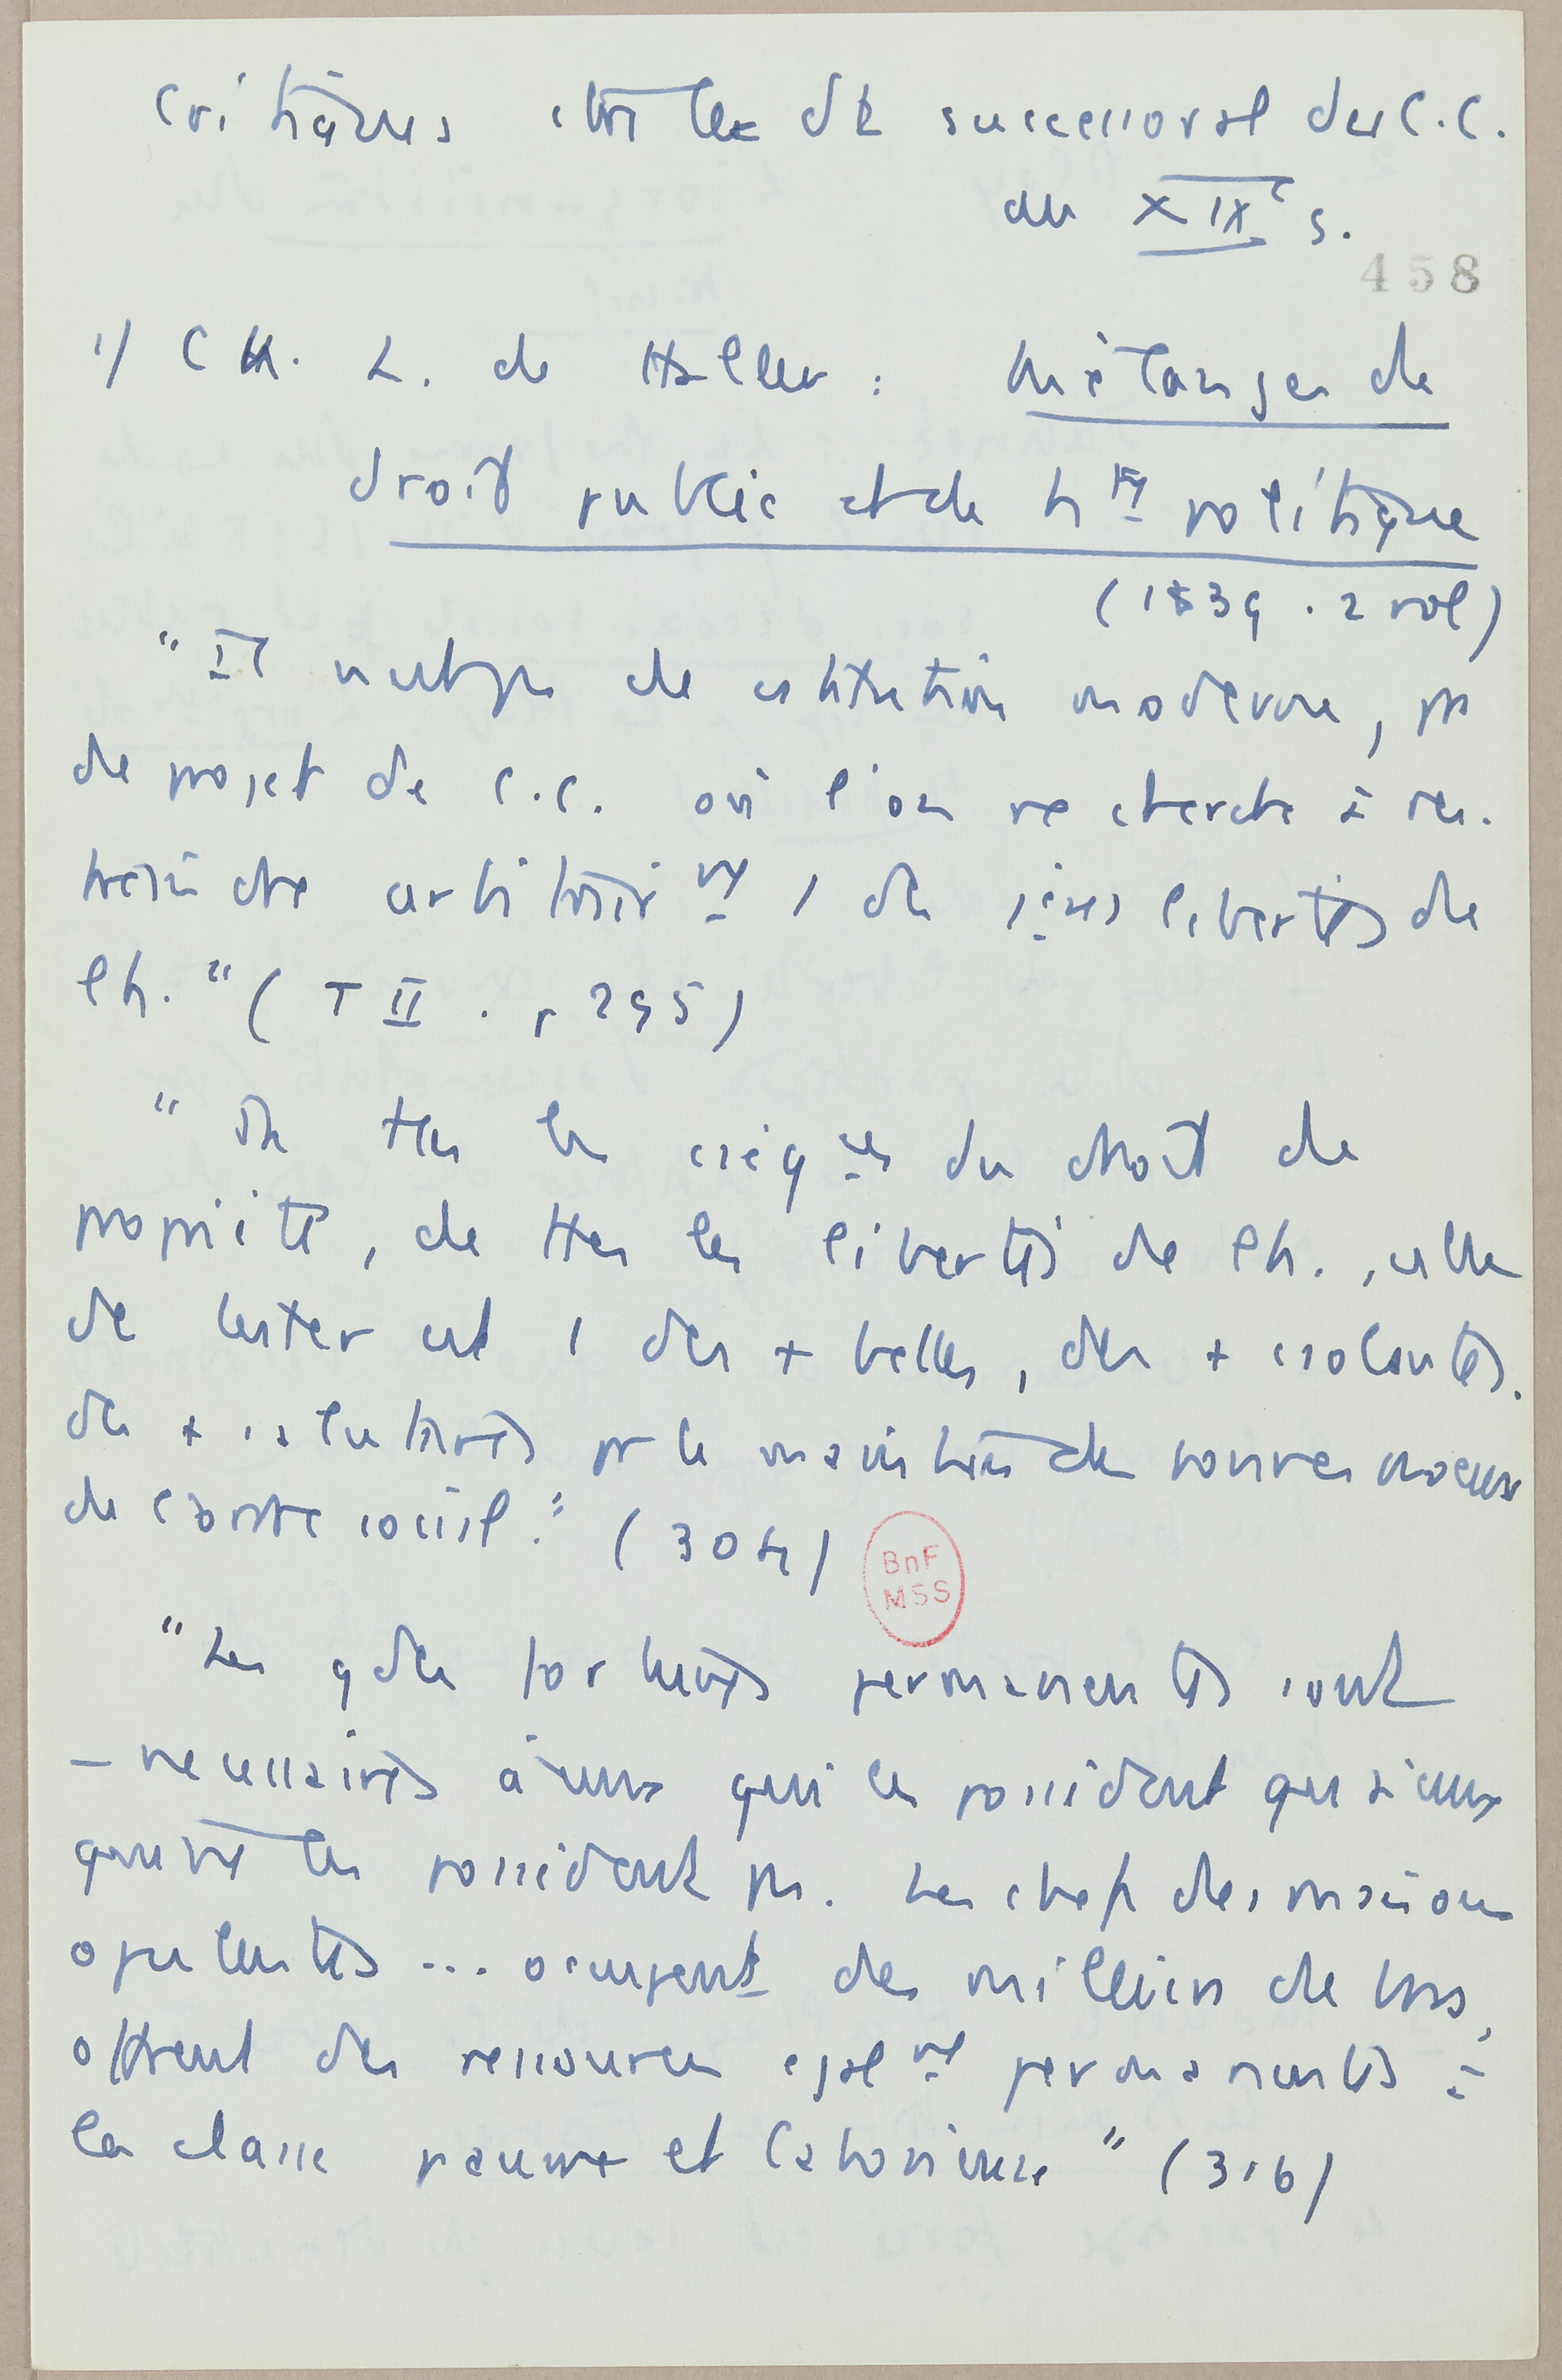 Critiques ctre le dt successoral du C.C.
au XIXe s.
458
1/ Ch. L. de Haller : Mélanges de
droit public et de hre politique
(1839. 2 vol)
"Il n'est pr de constitution moderne, pr
de projet de C.C. où l'on ne cherche à res-
treindre arbitrairt 1 de ces libertés de
l'h." (T II. p 295)
"De ttes les conséqces du droit de
propriété, de ttes les libertés de l'h., celle
de tester est 1 des + belles, des + consolantes,
des + salutaires pr le maintien des bonnes moeurs
de l'ordre social." (304)
"Les gdes fortunes permanentes sont
- nécessaires à ceux qui les possèdent qu'à ceux
qui ne les possèdent ps. Les chefs des maisons
opulentes ... occupent des milliers de bras,
offrent des ressources égalt permanentes à
la classe pauvre et laborieuse" (316)
BnF
MSS